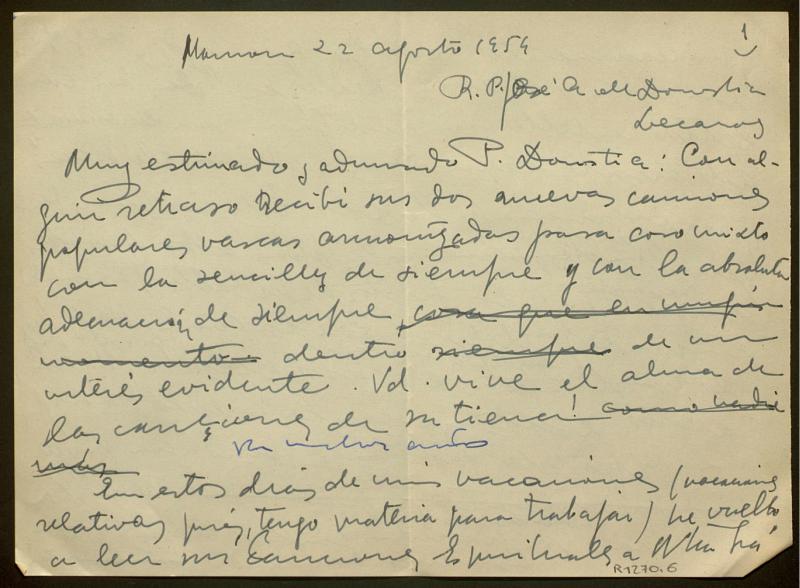 22 agosto 1954
1
R. P. José A. de Donostia
Lecaroz
Muy estimado y admirado P. Donostia: Con al-
gún retraso recibí sus dos nuevas canciones
populares vascas armonizadas para coro mixto
con la sencillez de siempre y con la absoluta
adecuación de siempre, cosa que en ningún
momento dentro siempre de un
interés evidente. Vd. vive el alma de
las canciones de su tierra! como nadie
más
En estos días de mis vacaciones (vacaciones
relativas pués, tengo materia para trabajar) he vuelto
a leer sus Canciones Espirituales a Ntra
R1270.6